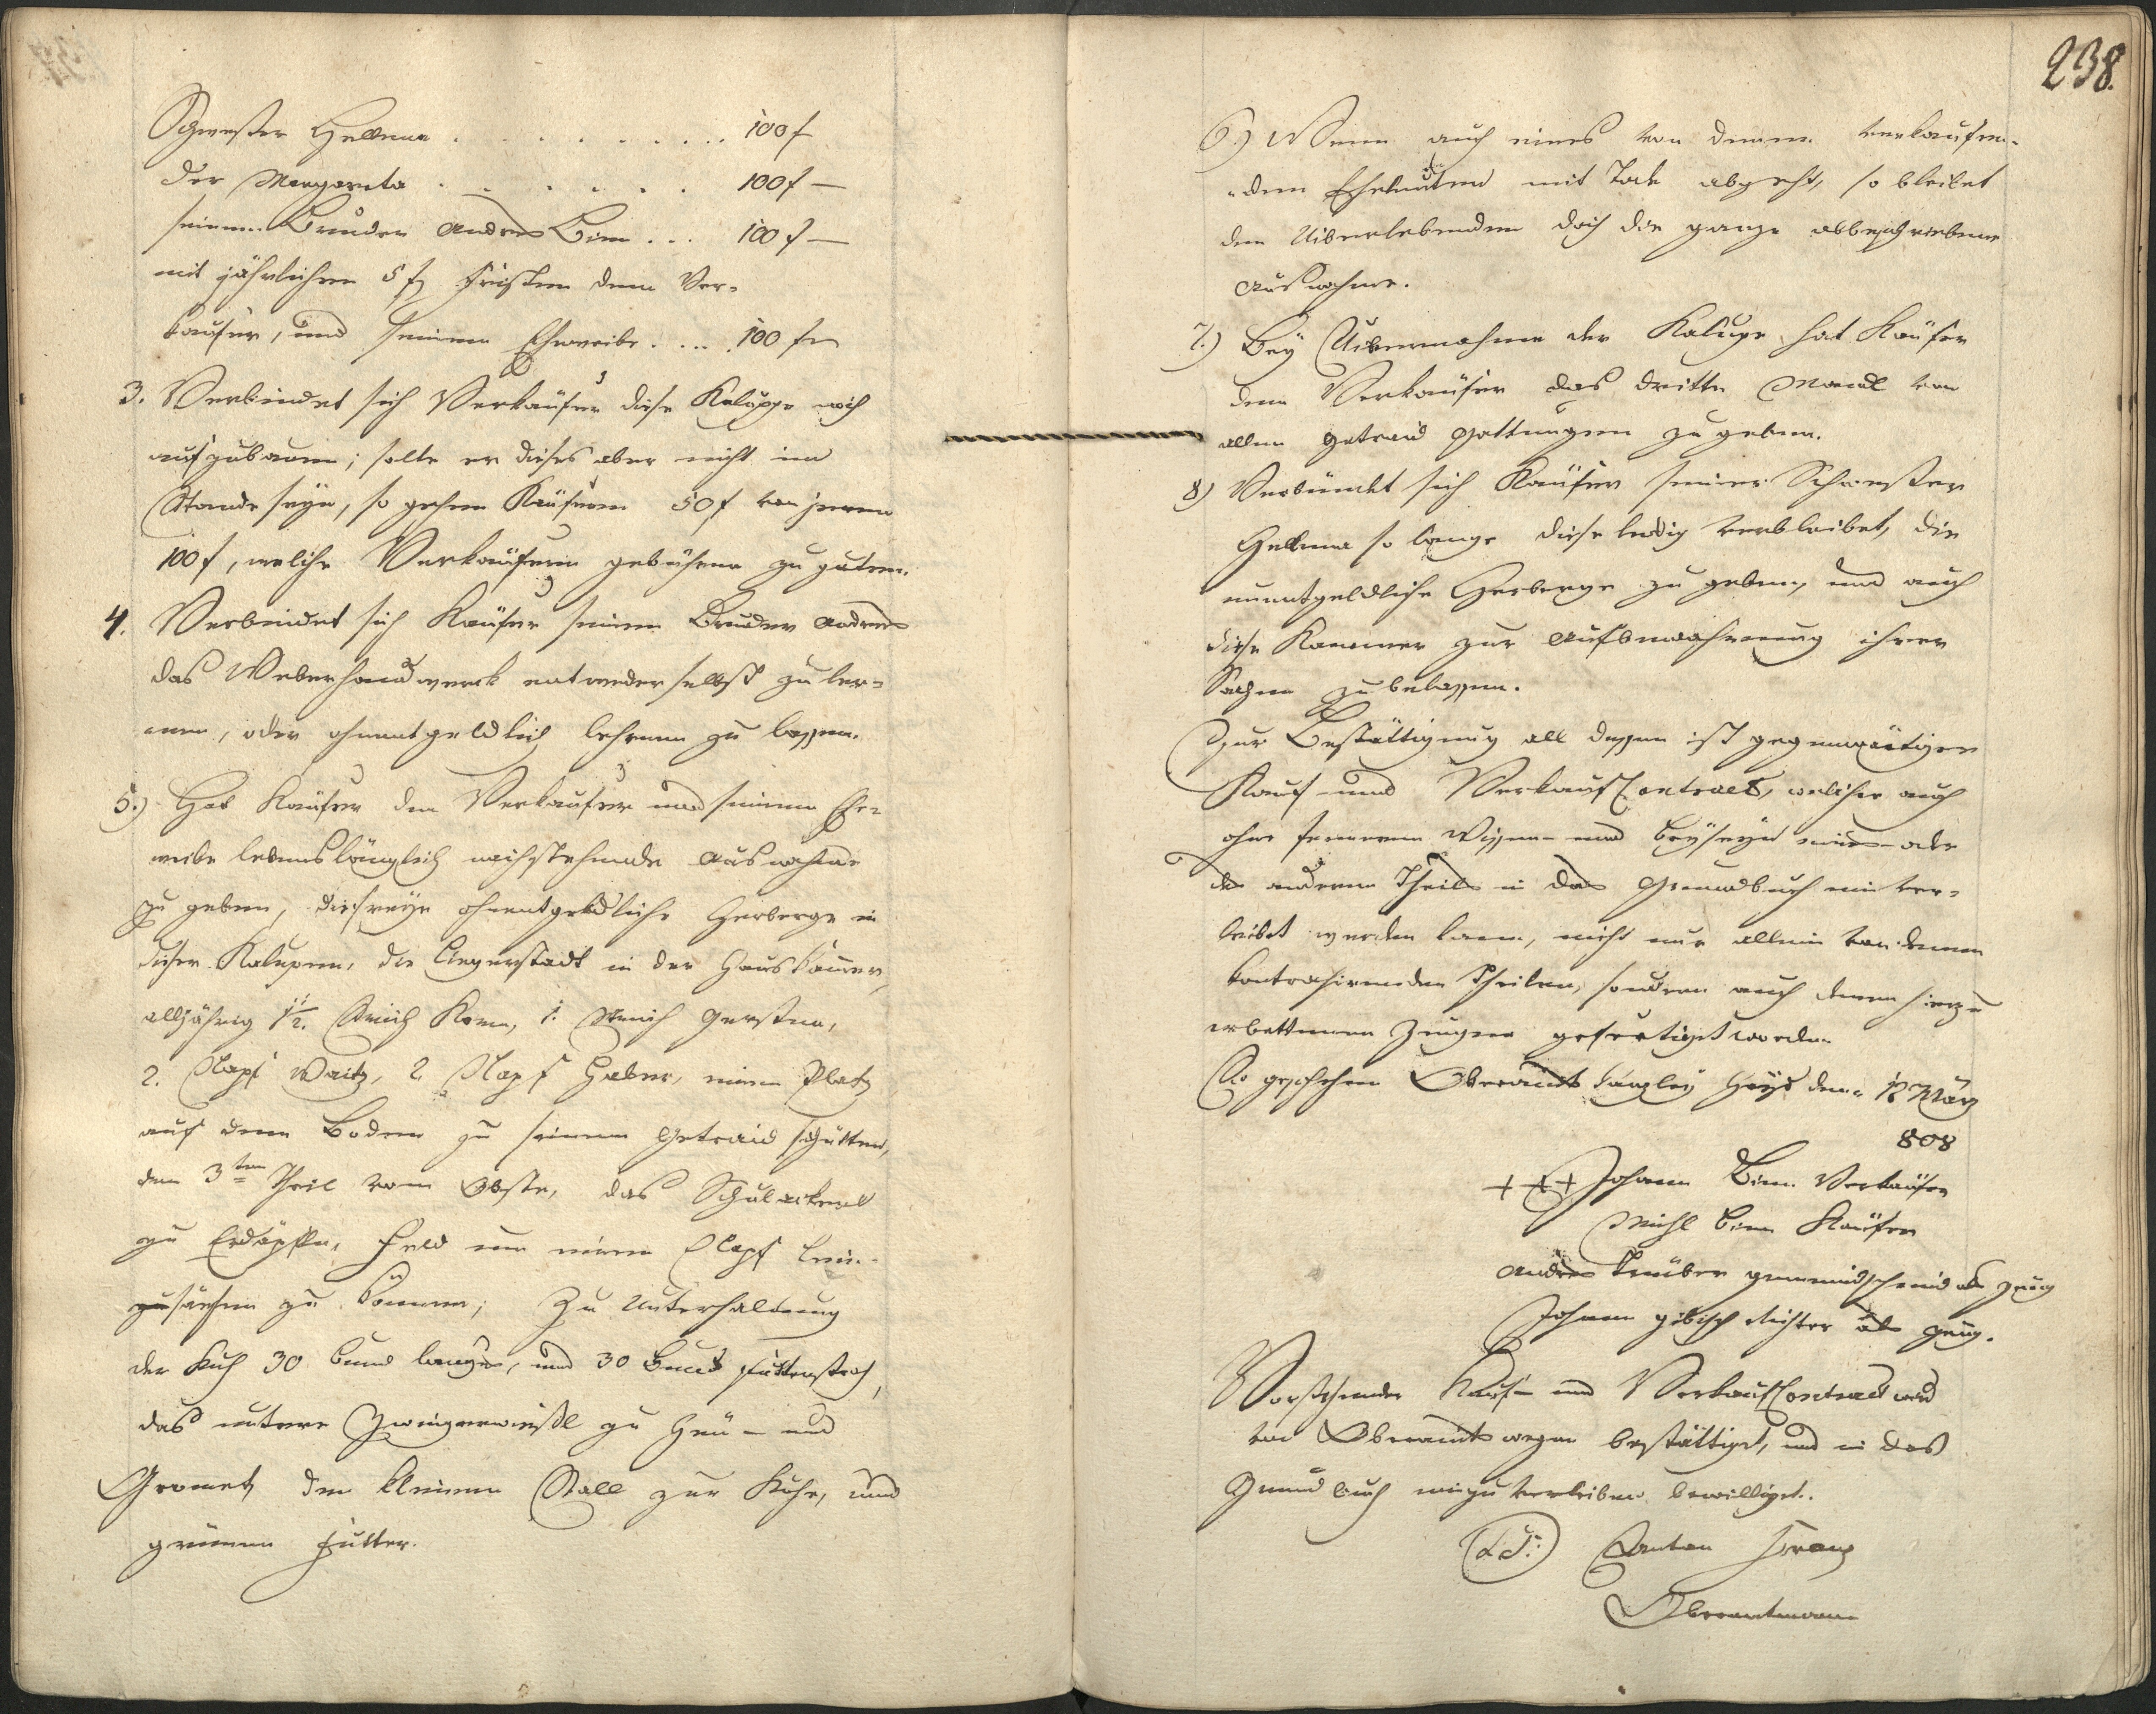 Schwester Hellena . . . . . . . . . 100 f
der Margareta . . . . . . . 100 f —
seinem Bruder Andres Bim . . . 100 f —
mit jährlichen 5 f fristen dem Ver-
kaufer, und seinem Eheweibe . . . . 100 f
3. Verbindet sich Verkäufer diese Kaluppe noch
aufzubauen; solte er dieses aber nicht im
Stande seyn, so gehen Käufern 50 f von jenen
100 f, welche Verkäufern gebühren zu guten.
4. Verbindet sich Käufer seinem Bruder Andres
das Weberhandwerk entweder selbst zu ler-
nen, oder ohnentgeldlich lehrnen zu lassen.
5.) Hat Käufer dem Verkaufer und seinem Ehe-
weibe lebenslänglich nachstehende Ausnahme
zu geben, die freye ohnentgeldliche Herberge in
dieser Kalupen, die Liegerstadt in der Hauskammer,
alljährig 1½ Strich Korn, 1. Strich Gersten,
2. Napf Waitz, 2 Napf Haber, einen Platz
auf dem Boden zu seinem Getraid schütten,
den 3ten Theil vom Obste, das Schulackerl
zu Erdäpfln, Feld um einen Napf Lein-
zusäehen zu können; Zu Unterhaltung
der Kuh 30 bund langes, und 30 bund futterstroh,
das untere Zwingerwiesl zu Heu- und
Gromet, den kleinen Stall zur Kuhe, und
grünen Futter.
238.
6.) Wenn auch eines von denen verkaufen-
den Eheleuten mit Tode abgeht, so bleibet
dem Uiberlebenden doch die ganze obbeschriebene
Ausnahme.
7.) Bey Uibernahme der Kalupe hat Käufer
dem Verkäufer das dritte Mandl von
allen Getraid Gattungen zu geben.
8) Verbündet sich Käufer seiner Schwester
Hellena so lange diese ledig verbleibet, die
unentgeldliche Herberge zu geben, und auch
diese Kammer zur Aufbewahrung ihrer
Sachen zu belassen.
Zur Bestättigung all dessen ist gegenwärtiger
Kauf- und VerkaufContract, welcher auch
ohne ferneren Wissen- und Beyseyn eines- oder
des anderen Theils in das Grundbuch ein ver-
leibet werden kann, nicht nur allein von denen
kontrahirenden Theilen, sondern auch denen hiezu
erbettenen Zeugen gefertiget worden.
So geschehen Oberamts kanzley Hayd den 12 März
808
+ + + Johann Bim Verkäufer
Michl Bim Käufer
Andres Träuber gemeindschmid als Zeug
Johann Gibisch Richter als Zeug.
Vorstehender Kauf- und VerkaufContract wird
von Oberamts wegen bestättiget, und in das
Grundbuch einzuverleiben bewilliget.
(L.S.) Anton Franz
Oberamtmann